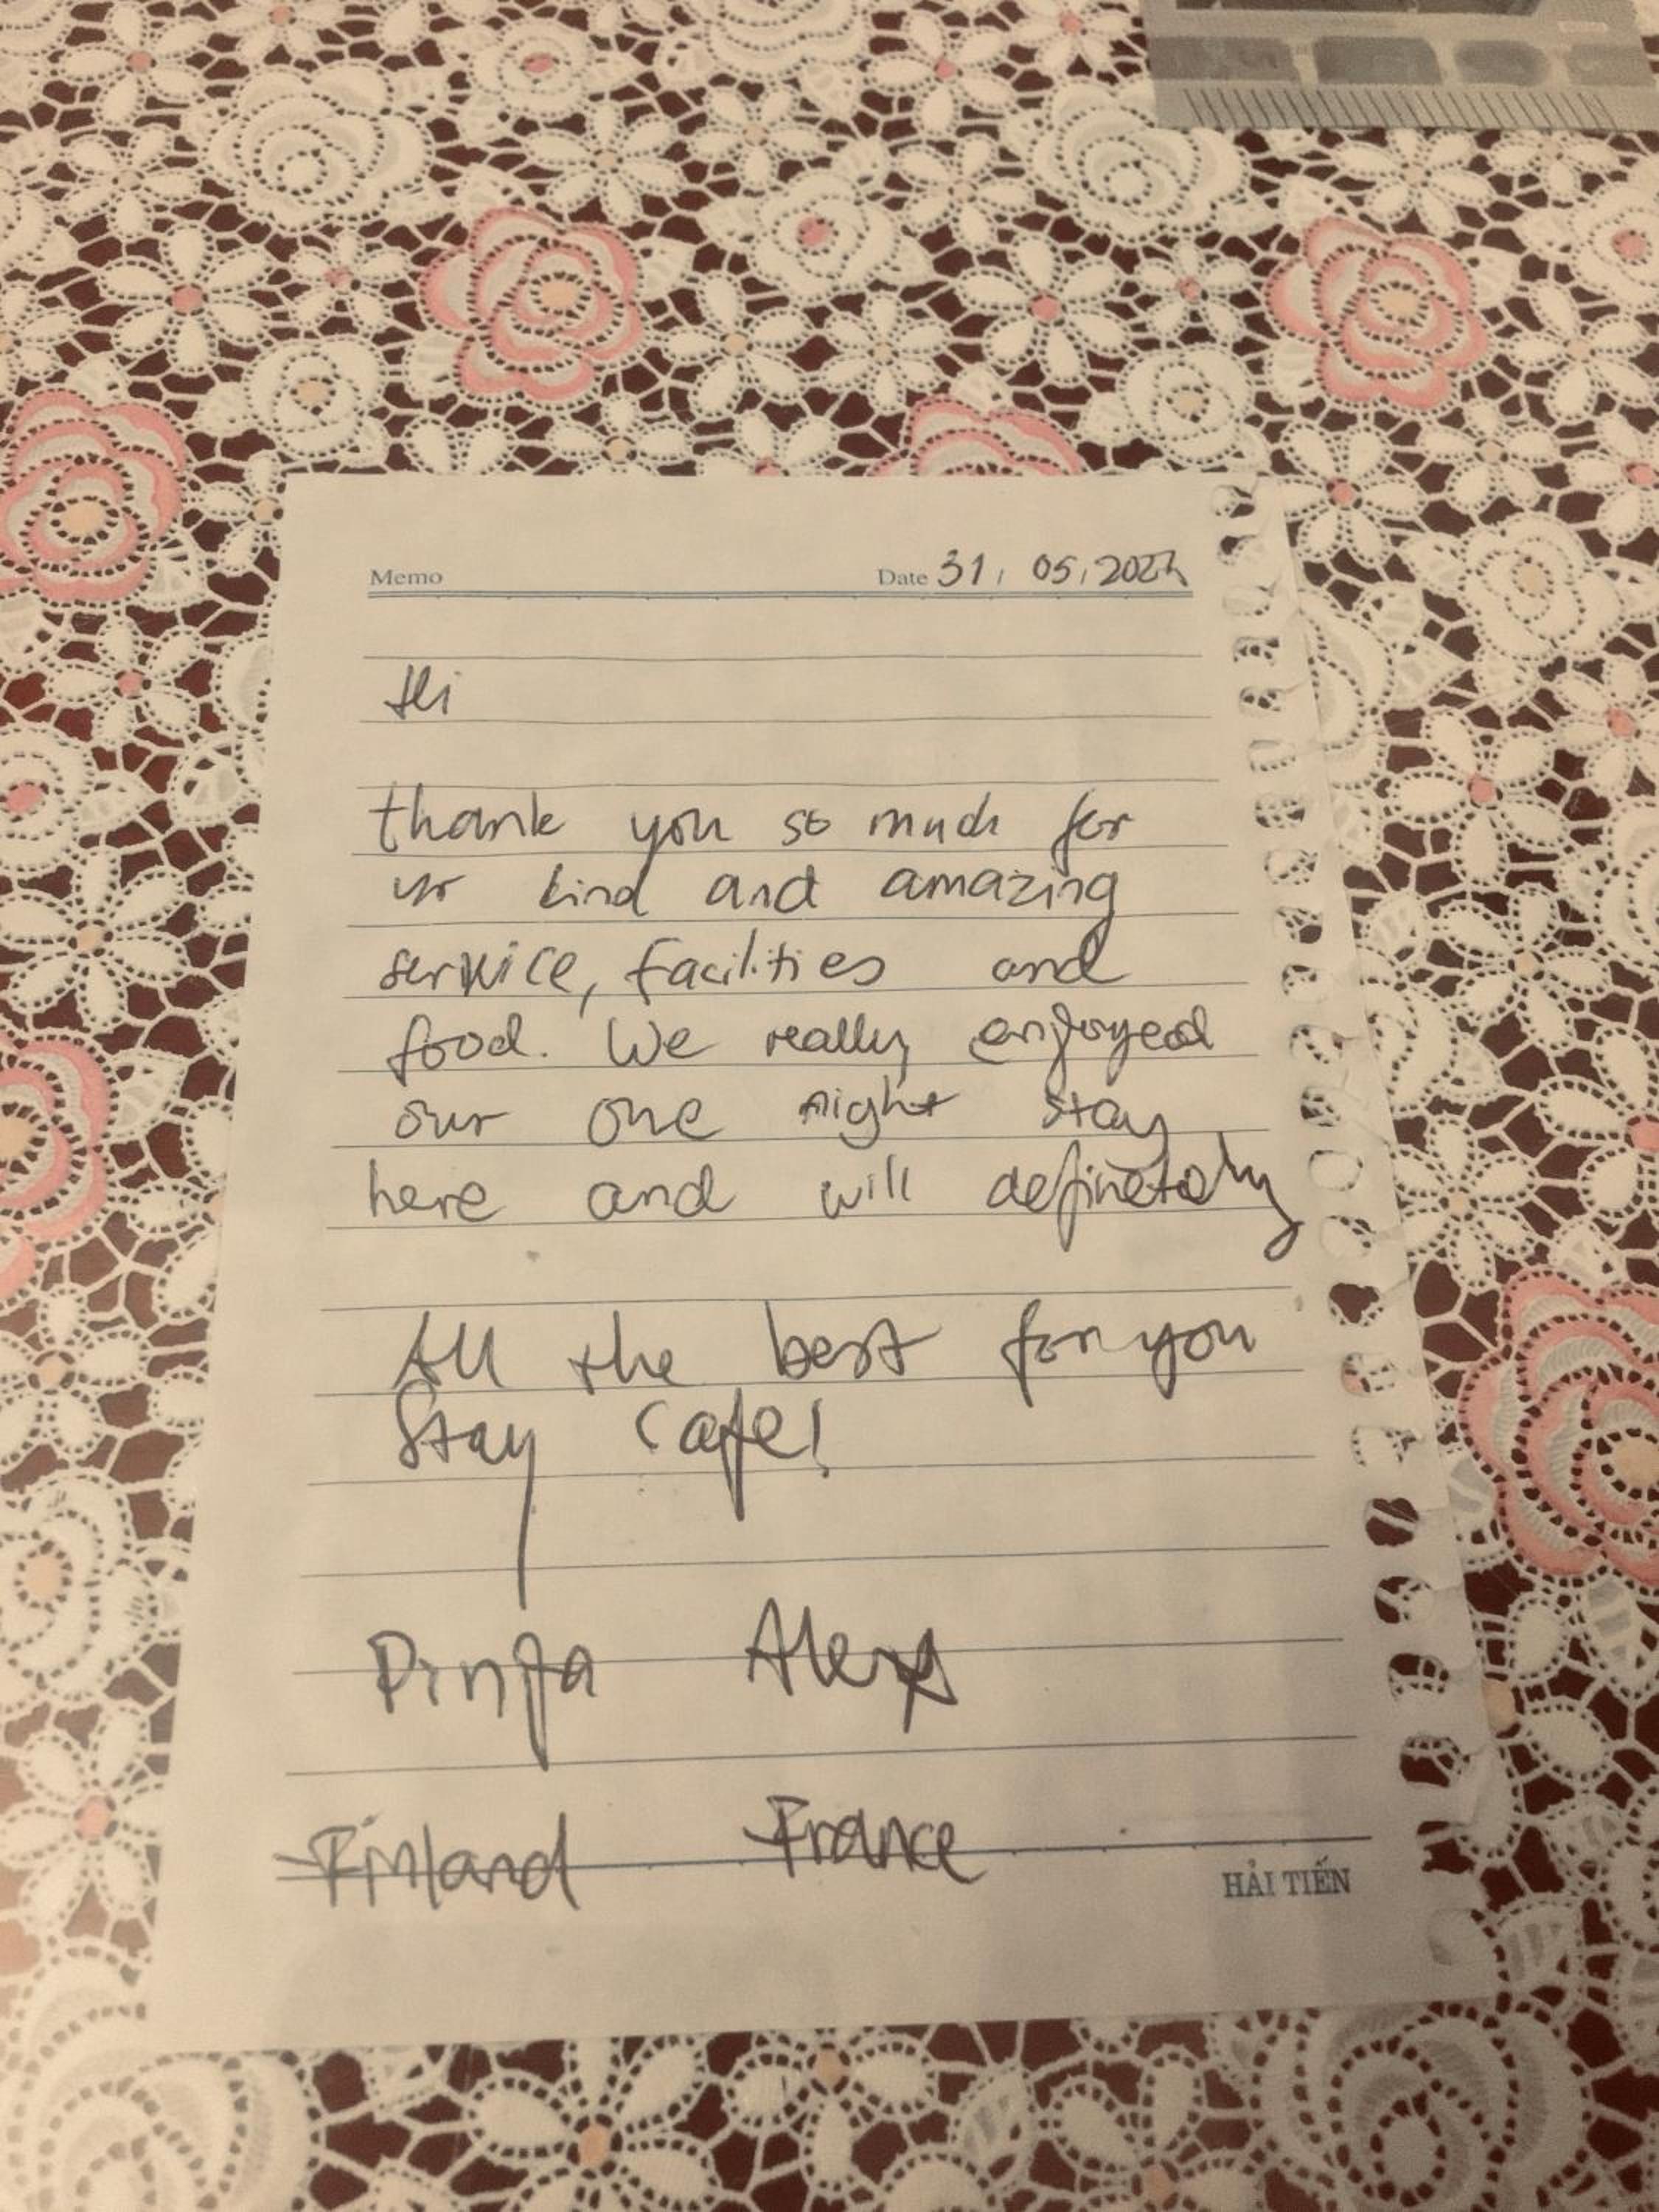 Memo Date 31, 05, 202
Hi
thank you so much for
ur kind and amazing
service, facilities and
food. We really enjoyed
our one night stay
here and will definetely
All the best for you
Stay Cafe!
Pinja Alexs
Finland France
HẢI TIẾN